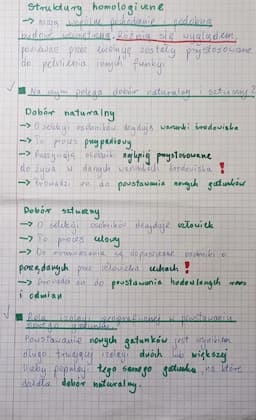 Struktury homologiczne
→ mają wspólne pochodzenie i podobną
budowę wewnętrzną. Różnią się wyglądem,
ponieważ przez ewolucję zostały przystosowane
do pełnienia innych funkcji
Na czym polega dobór naturalny i sztuczny?
Dobór naturalny
→ O selekcji osobników decydują warunki środowiska
→ To proces przypadkowy
→ Przeżywają osobniki najlepiej przystosowane
do życia w danych warunkach środowiska!
→ Prowadzi on do powstawania nowych gatunków
Dobór sztuczny
→ O selekcji osobników decyduje człowiek
→ To proces celowy
→ Do rozmnażania są dopuszczane osobniki o
pożądanych przez człowieka cechach!
→ Prowadzi on do powstawania hodowlanych ras
i odmian
Rola izolacji geograficznej w powstawaniu
nowego gatunku
Powstawanie nowych gatunków jest wynikiem
długo trwającej izolacji dwóch lub większej
liczby populacji tego samego gatunku, na które
działa dobór naturalny.